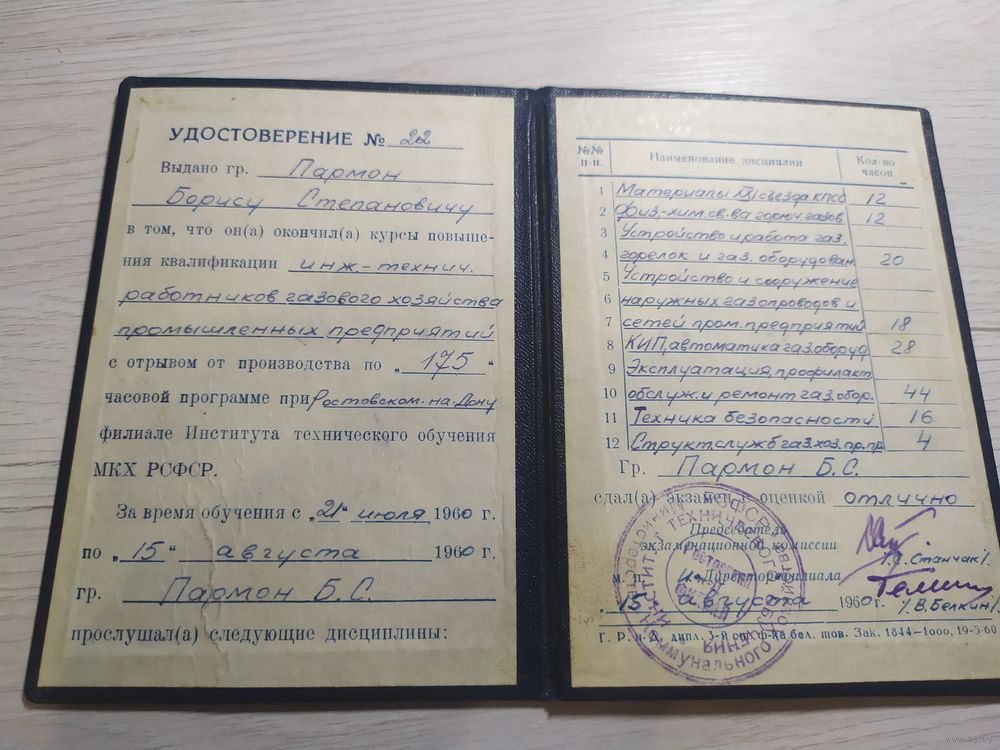 УДОСТОВЕРЕНИЕ № 22
Выдано гр. Пармон
Борису Степановичу
в том, что он(а) окончил(а) курсы повыше-
ния квалификации инж.-технич.
работников газового хозяйства
промышленных предприятий
с отрывом от производства по „175"
часовой программе при Ростовском-на-Дону
филиале Института технического обучения
МКХ РСФСР.
За время обучения с „21" июля 1960 г.
по „15" августа 1960 г.
гр. Пармон Б.С.
прослушал(а) следующие дисциплины:
№№ п-п. Наименование дисциплин Кол-во часов
1 Материалы XXI съезда КПСС 12
2 Физ-хим св.ва горюч. газов 12
3 Устройство и работа газ.
4 горелок и газ. оборудован 20
5 Устройство и сооружение
6 наружных газопроводов и
7 сетей пром. предприятий 18
8 КИП, автоматика газ. оборуд 28
9 Эксплуатация, профилакт
10 обслуж. и ремонт газ. обор. 44
11 Техника безопасности 16
12 Структ. служб газ. хоз. пр. пр 4
Гр. Пармон Б.С.
сдал(а) экзамен с оценкой отлично
Председатель
экзаменационной комиссии
/.С. Станчак/.
м. п. Директор филиала
15 августа 1960 г. /.В. Белкин/.
Г. Р. н. Д. липл. 3-й ф-ка бел. тов. Зак. 1844—1000, 19-5-60
ИНСТИТУТ ТЕХНИЧЕСКОГО ОБУЧЕНИЯ
коммунального
РСФСР
РОСТОВСКИЙ
ФИЛИАЛ